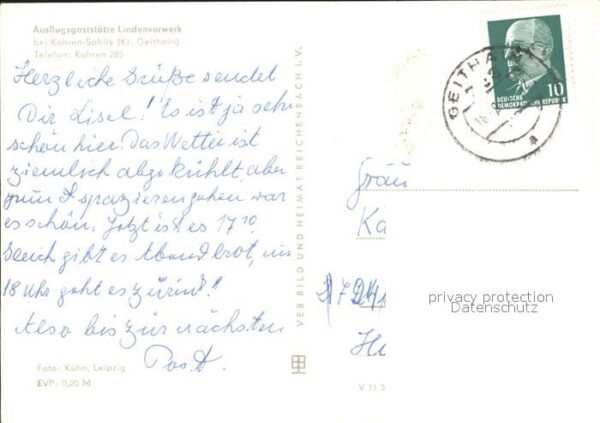 Ausflugsgaststätte Lindenvorwerk
bei Kohren-Sahlis (Kr. Geithain)
Telefon: Kohren 285
Herzliche Grüße sendet
Dir Lisel! Es ist ja sehr
schön hier. Das Wetter ist
ziemlich abgekühlt aber
zum spazierengehen war
es schön. Jetzt ist es 17¹⁰.
Gleich gibt es Abendbrot, um
18 Uhr geht es zürück!
Also bis zur nächsten
Post.
Foto: Kühn, Leipzig
EVP: 0,20 M
VEB BILD UND HEIMAT REICHENBACH I. V.
V 11 5
GEITHAIN
18
a
10
DEUTSCHE
DEMOKRATISCHE REPUBLIK
Frau
Ka
privacy protection
Datenschutz